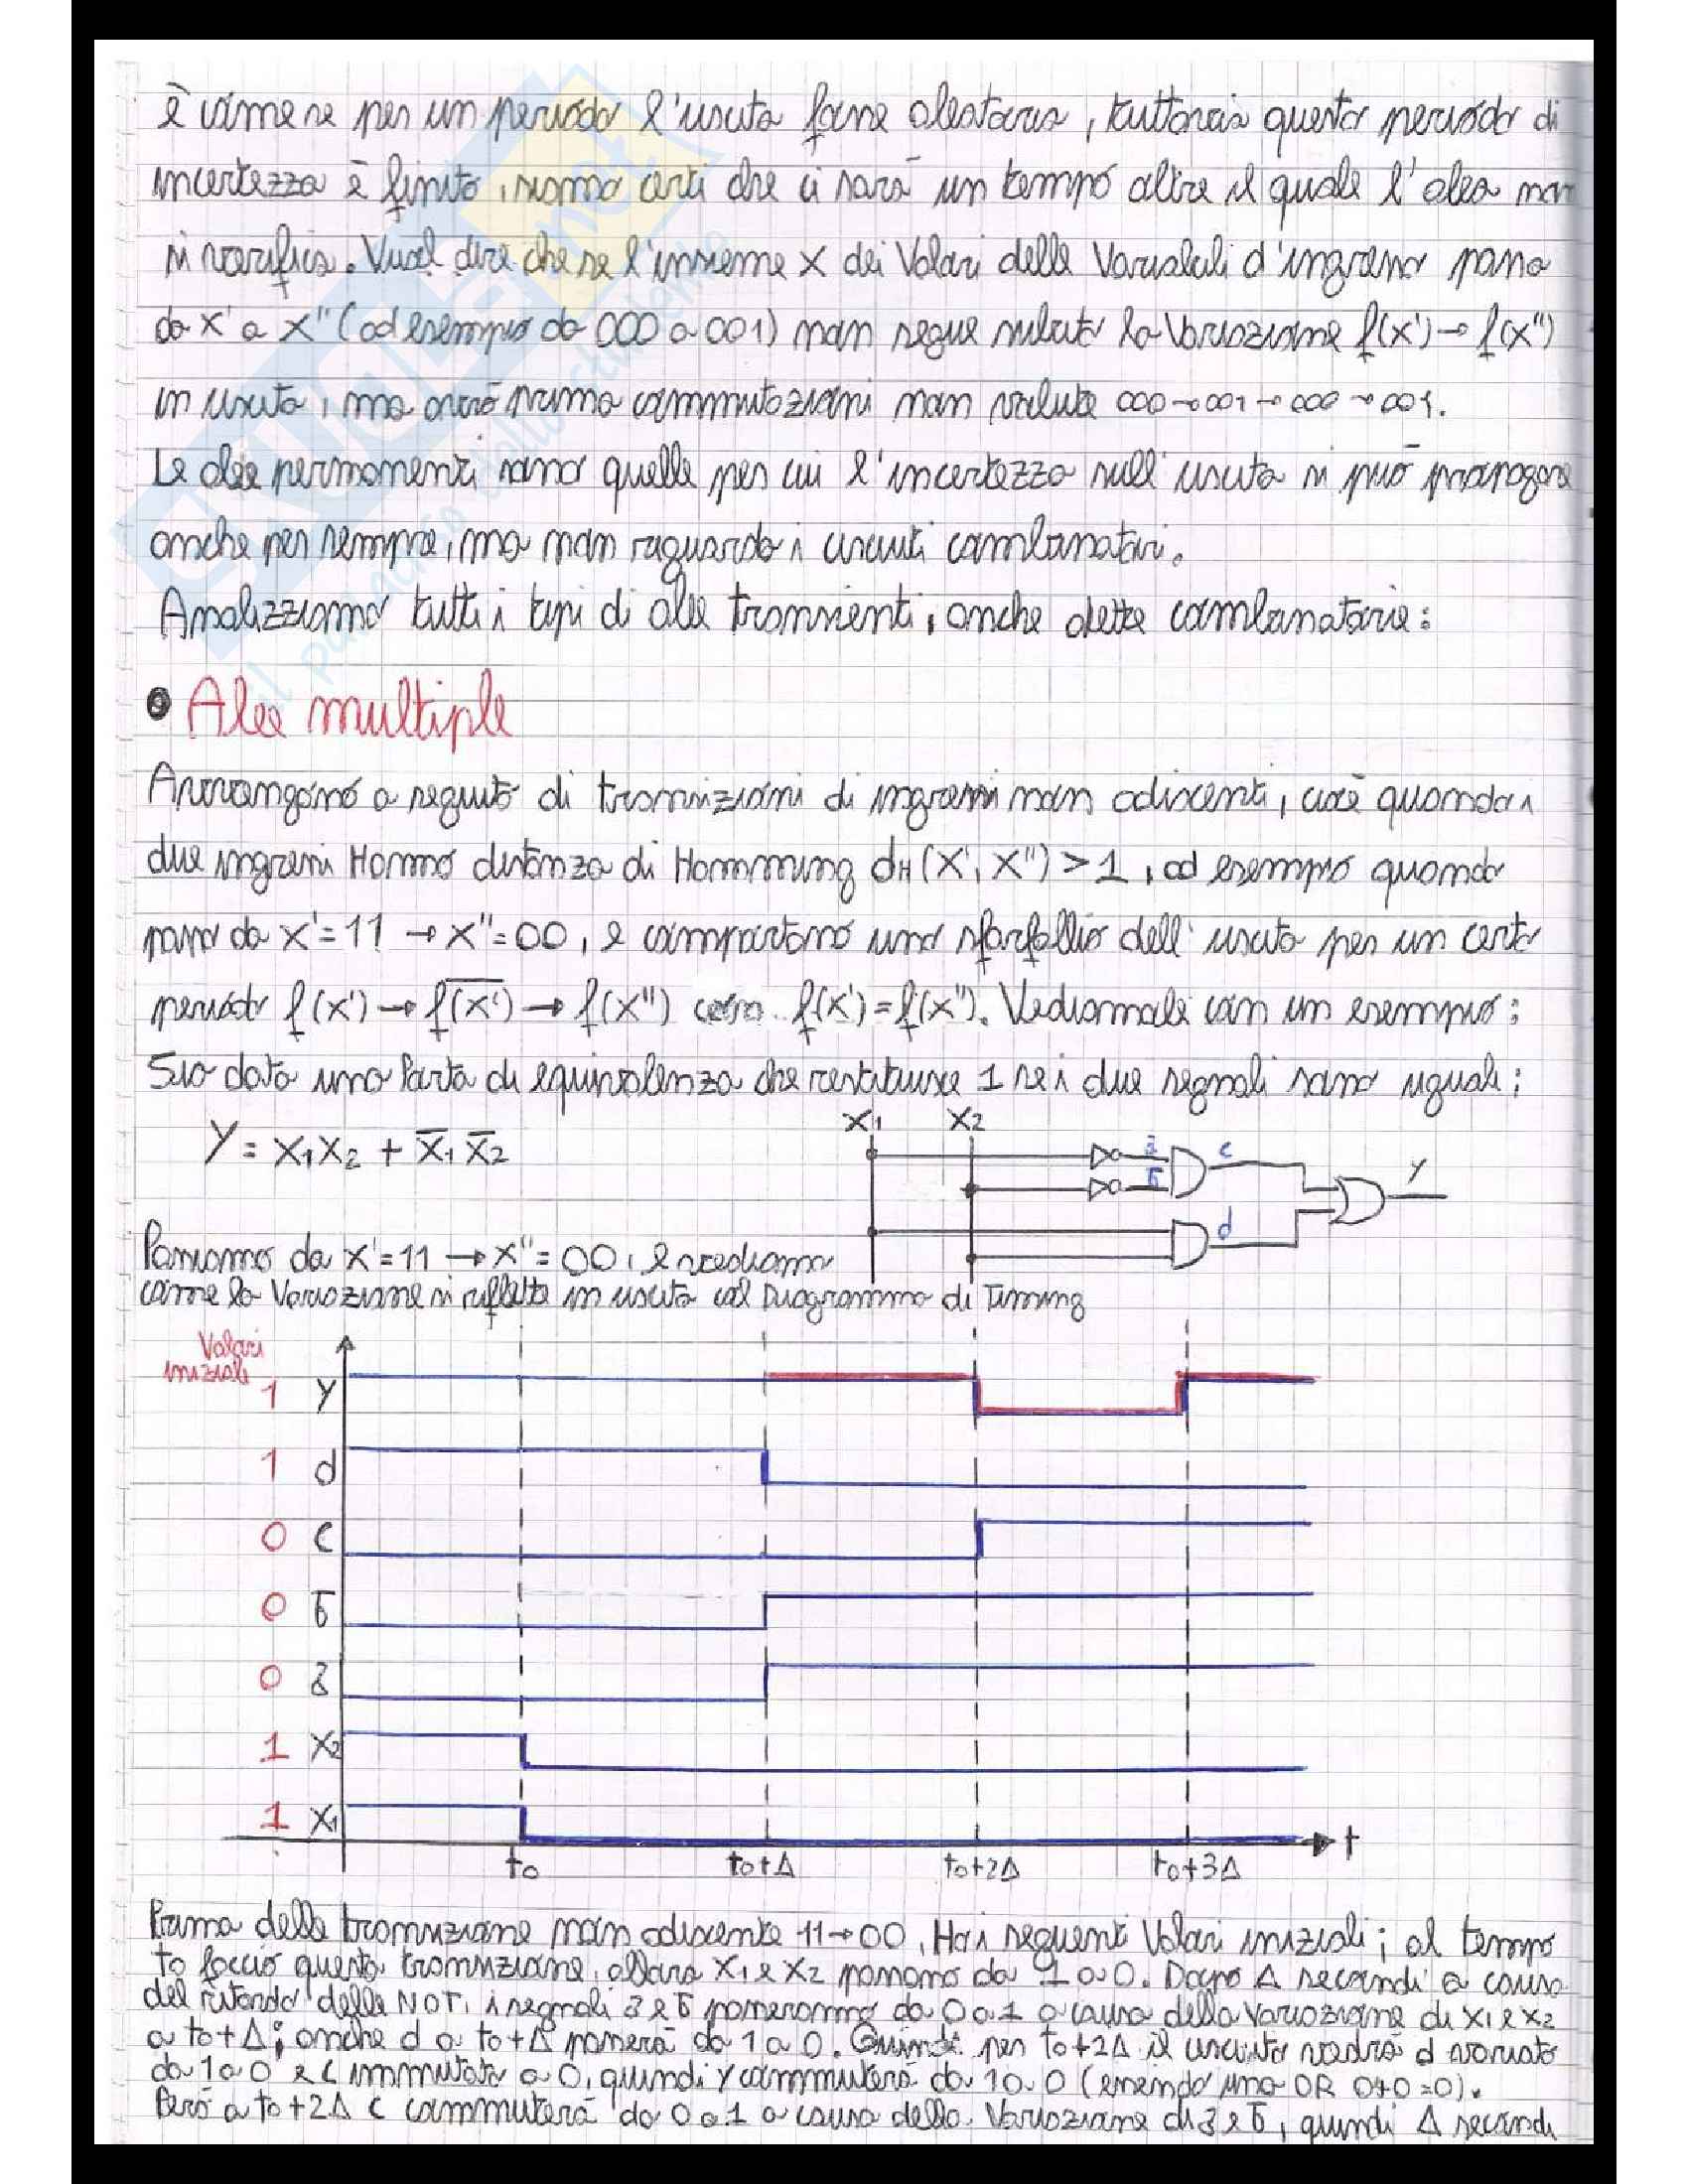 è come se per un periodo l'uscita fosse aleatoria, tuttavia questo periodo di
incertezza è finito, siamo certi che ci sarà un tempo oltre il quale l'alea non
si verifica. Vuol dire che se l'insieme X dei Valori delle Variabili d'ingresso passa
da X' a X'' (ad esempio da 000 a 001) non segue subito la Variazione f(X')→f(X'')
in uscita, ma avrò prima commutazioni non volute 000→001→000→001.
Le alee permanenti sono quelle per cui l'incertezza sull'uscita si può propagare
anche per sempre, ma non riguarda i circuiti combinatori.
Analizziamo tutti i tipi di alee transienti, anche dette combinatorie:
• Alee multiple
Avvengono a seguito di transizioni di ingressi non adiacenti, cioè quando i
due ingressi Hanno distanza di Hamming dH(X', X'')>1, ad esempio quando
passo da X'=11 → X''=00, e comportano uno sfarfallio dell'uscita per un certo
periodo f(X')→f(X̅'̅)→f(X'') con f(X')=f(X''). Vediamole con un esempio:
Sia data una Porta di equivalenza che restituisce 1 se i due segnali sono uguali:
X1 X2
Y = X1X2 + X̅1 X̅2
a̅ c
b̅
Y
d
Passiamo da X'=11 → X''=00, e vediamo
come la Variazione si riflette in uscita col Diagramma di Timing
Valori
iniziali
1 Y
1 d
0 c
0 b̅
0 a̅
1 X2
1 X1
t
t0 t0+Δ t0+2Δ t0+3Δ
Prima della transizione non adiacente 11→00, Ho i seguenti Valori iniziali; al tempo
t0 faccio questa transizione, allora X1 e X2 passano da 1 a 0. Dopo Δ secondi a causa
del ritardo delle NOT, i segnali a̅ e b̅ passeranno da 0 a 1 a causa della variazione di X1 e X2
a t0+Δ; anche d a t0+Δ passerà da 1 a 0. Quindi per t0+2Δ il circuito vedrà d variato
da 1 a 0 e c immutato a 0, quindi Y commuterà da 1 a 0 (essendo una OR 0+0=0).
Però a t0+2Δ c commuterà da 0 a 1 a causa della Variazione di a̅ e b̅, quindi Δ secondi